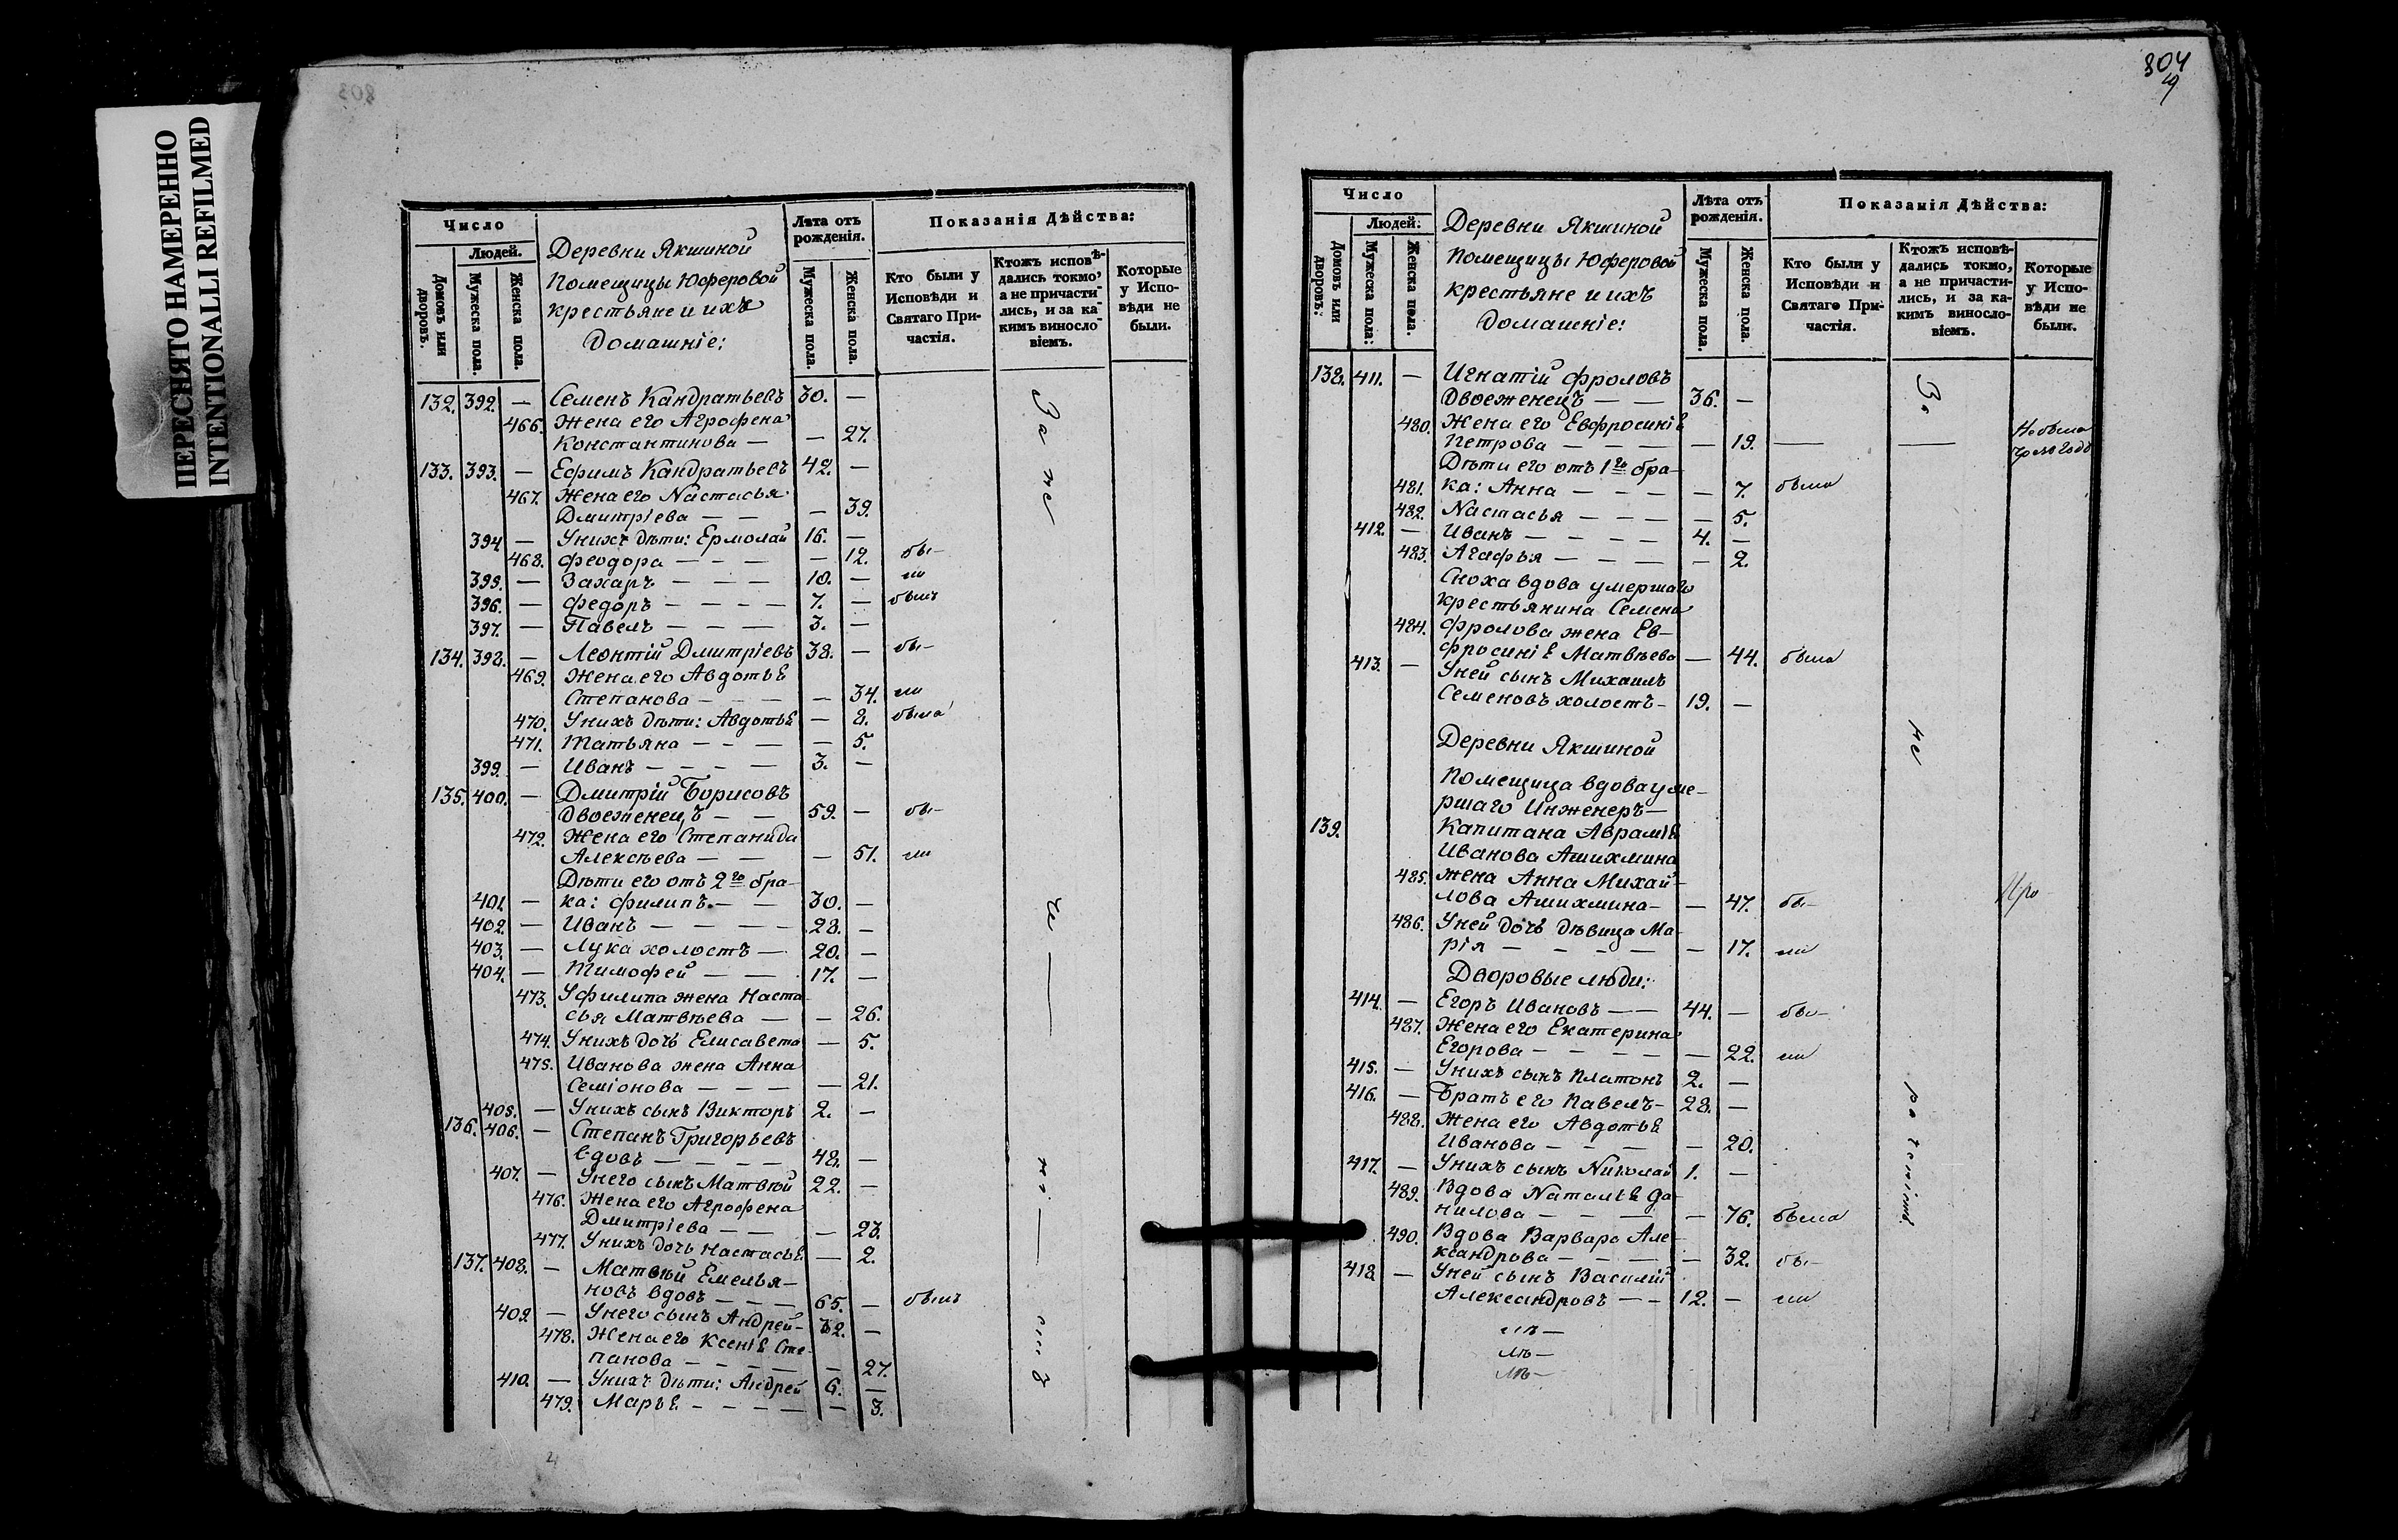 ПЕРЕСНЯТО НАМЕРЕННО
INTENTIONALLI REFILMED
803
Число
Людей.
Домовъ или дворовъ.
Мужеска пола.
Женска пола.
Деревни Якшиной
Помещицы Юферовой
крестьяне и ихъ
Домашніе:
Лѣта отъ рожденія.
Мужеска пола.
Женска пола.
Показанія Дѣйства:
Кто были у Исповѣди и Святаго Причастія.
Ктожъ исповѣдались токмо, а не причастились, и за какимъ винословіемъ.
Которые у Исповѣди не были.
132. 392. — Семенъ Кандратьевъ 30. —
466. Жена его Агрофена
Константинова — — 27.
133. 393. — Ефимъ Кандратьевъ 42. —
467. Жена его Nастасья
Дмитріева — — — 39.
394 — Унихъ дѣти: Ермолай 16. —
468. Феодора — — — — 12. бы-
395. — Захаръ — — — 10. — ли
396. — Федоръ — — — — 7. — былъ
397. — Павелъ — — — 3. —
134. 398. — Леонтій Дмитріевъ 38. — бы-
469. Жена его Авдотьѣ
Степанова — — — — 34. ли
470. Унихъ дѣти: Авдотьѣ — 8. была
471. Татьяна — — — — 5.
399. — Иванъ — — — — 3. —
135. 400. — Дмитрій Борисовъ
Двоеженецъ — — 59. — бы-
472. Жена его Степанида
Алексѣева — — — 51. ли
Дѣти его отъ 2го бра-
401. — ка: Филипъ. — — 30. —
402. — Иванъ — — — — 28. —
403. — Лука холостъ — 20. —
404. — Тимофей — — 17. —
473. У филипа жена Наста-
сья Матвѣева — — 26.
474. Унихъ дочь Елисавета — 5.
475. Иванова жена Анна
Семіонова — — — — 21.
405. — Унихъ сынъ Викторъ 2. —
136. 406. — Степанъ Григорьевъ
вдовъ — — — — 48. —
407. — Унего сынъ Матвѣй 22. —
476. Жена его Агрофена
Дмитріева — — — 23.
477. Унихъ дочь Настасьѣ — 2.
137. 408. — Матвѣй Емелья-
новъ вдовъ — — — 65. — былъ
409. — Унего сынъ Андрей — 32. —
478. Жена его Ксеніѣ Сте-
панова — — — — — 27.
410. — Унихъ дѣти: Андрей 6. —
479. Марьѣ — — — — — 3.
804
Число
Людей:
Домовъ или дворовъ:
Мужеска пола:
Женска пола.
Деревни Якшиной
Помещицы Юферовой
крестьяне и ихъ
Домашніе:
Лѣта отъ рожденія.
Мужеска пола.
Женска пола.
Показанія Дѣйства:
Кто были у Исповѣди и Святаго Причастія.
Ктожъ исповѣдались токмо, а не причастились, и за какимъ винословіемъ.
Которые у Исповѣди не были.
138. 411. — Игнатій Фроловъ
Двоеженецъ — — 36. —
480. Жена его Евфросиніѣ
Петрова — — — — 19. — — Не была
Дѣти его отъ 1го бра-
481. ка: Анна — — — — 7. была
482. Nастасья — — — — 5.
412. — Иванъ — — — — 4. —
483. Агафья — — — — 2.
Сноха вдова умершаго
крестьянина Семена
484. Фролова жена Ев-
фросиніѣ Матвѣева — 44. была
413. — Уней сынъ Михаилъ
Семеновъ холостъ — 19. —
Деревни Якшиной
Помещица вдова уме-
ршаго Инженеръ —
139. Капитана Авраміѣ
Иванова Ашихмина
485. жена Анна Михай-
лова Ашихмина — — 47. бы-
486. Уней дочь дѣвица Ма-
рія — — — — — 17. ли
Дворовые люди:
414. — Егоръ Ивановъ — — 44. — бы-
487. Жена его Екатерина
Егорова — — — — — 22. ли
415. — Унихъ сынъ Платонъ 2. —
416. — Братъ его Павелъ — 28. —
488. Жена его Авдотьѣ
Иванова — — — — 20.
417. — Унихъ сынъ Nиколай 1. —
489. Вдова Nатальѣ Да-
нилова — — — — 76. была
490. Вдова Варвара Але-
ксандрова — — — — 32. бы-
418 — Уней сынъ Василій
Александровъ — — 12. — ли